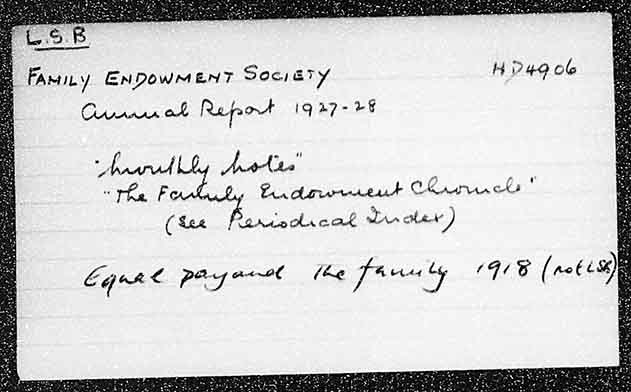 L.S.B
FAMILY ENDOWMENT SOCIETY HD4906
Annual Report 1927-28
"Monthly Notes"
"The Family Endowment Chronicle"
(See Periodical Index)
Equal pay and the family 1918 (not LSB)